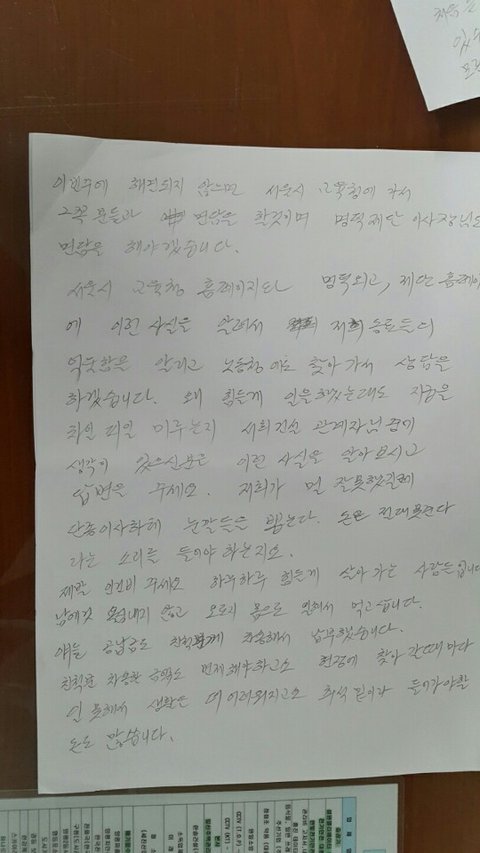 이번주에 해결되지 않으면 서울시 교육청에 가서
그쪽 분들과 면담을 할것이며 명덕재단 이사장님도
면담을 해야겠습니다.
서울시 교육청 홈페이지와 명덕외고, 재단 홈페이
에 이런 사실을 알려서 저희 동료들의
억울함을 알리고 노동청에도 찾아가서 상담을
하겠습니다. 왜 힘들게 일을 했는데도 지급을
차일 피일 미루는지 서희건설 관계자님 중에
생각이 있으신분은 이런 사실을 알아보시고
답변을 주세요. 저희가 뭘 잘못했길레
단종이사한테 눈깔들을 뽑는다. 돈은 절대 못준다
라는 소리를 들어야 하는지요.
제발 인건비 주세요 하루하루 힘들게 살아가는 사람들입니다
남에것 욕심내지 않고 오로지 몸으로 일해서 먹고 삽니다.
애들 공납금도 친척한테 차용해서 납부했습니다.
친척한테 차용한 금액도 먼저 해야하고요 현장에 찾아간때마다
일 못해서 생활은 더 어려워지고요 회식 들어가야할
돈도 많습니다.